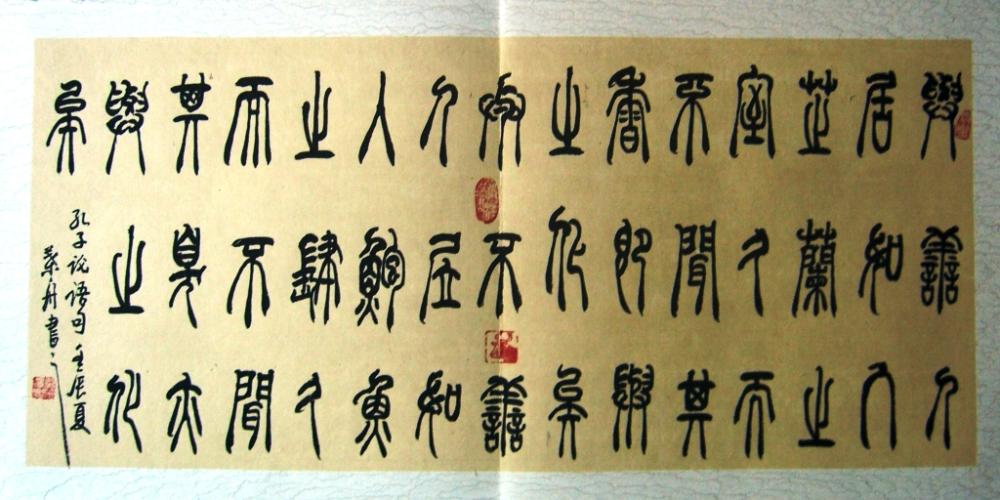 與善人
居如入
芷蘭之
室久而
不聞其
香即與
之化矣
與不善
人居如
入鮑魚
之肆久
而不聞
其臭亦
與之化
矣
孔子说语句 壬辰夏
葉舟書